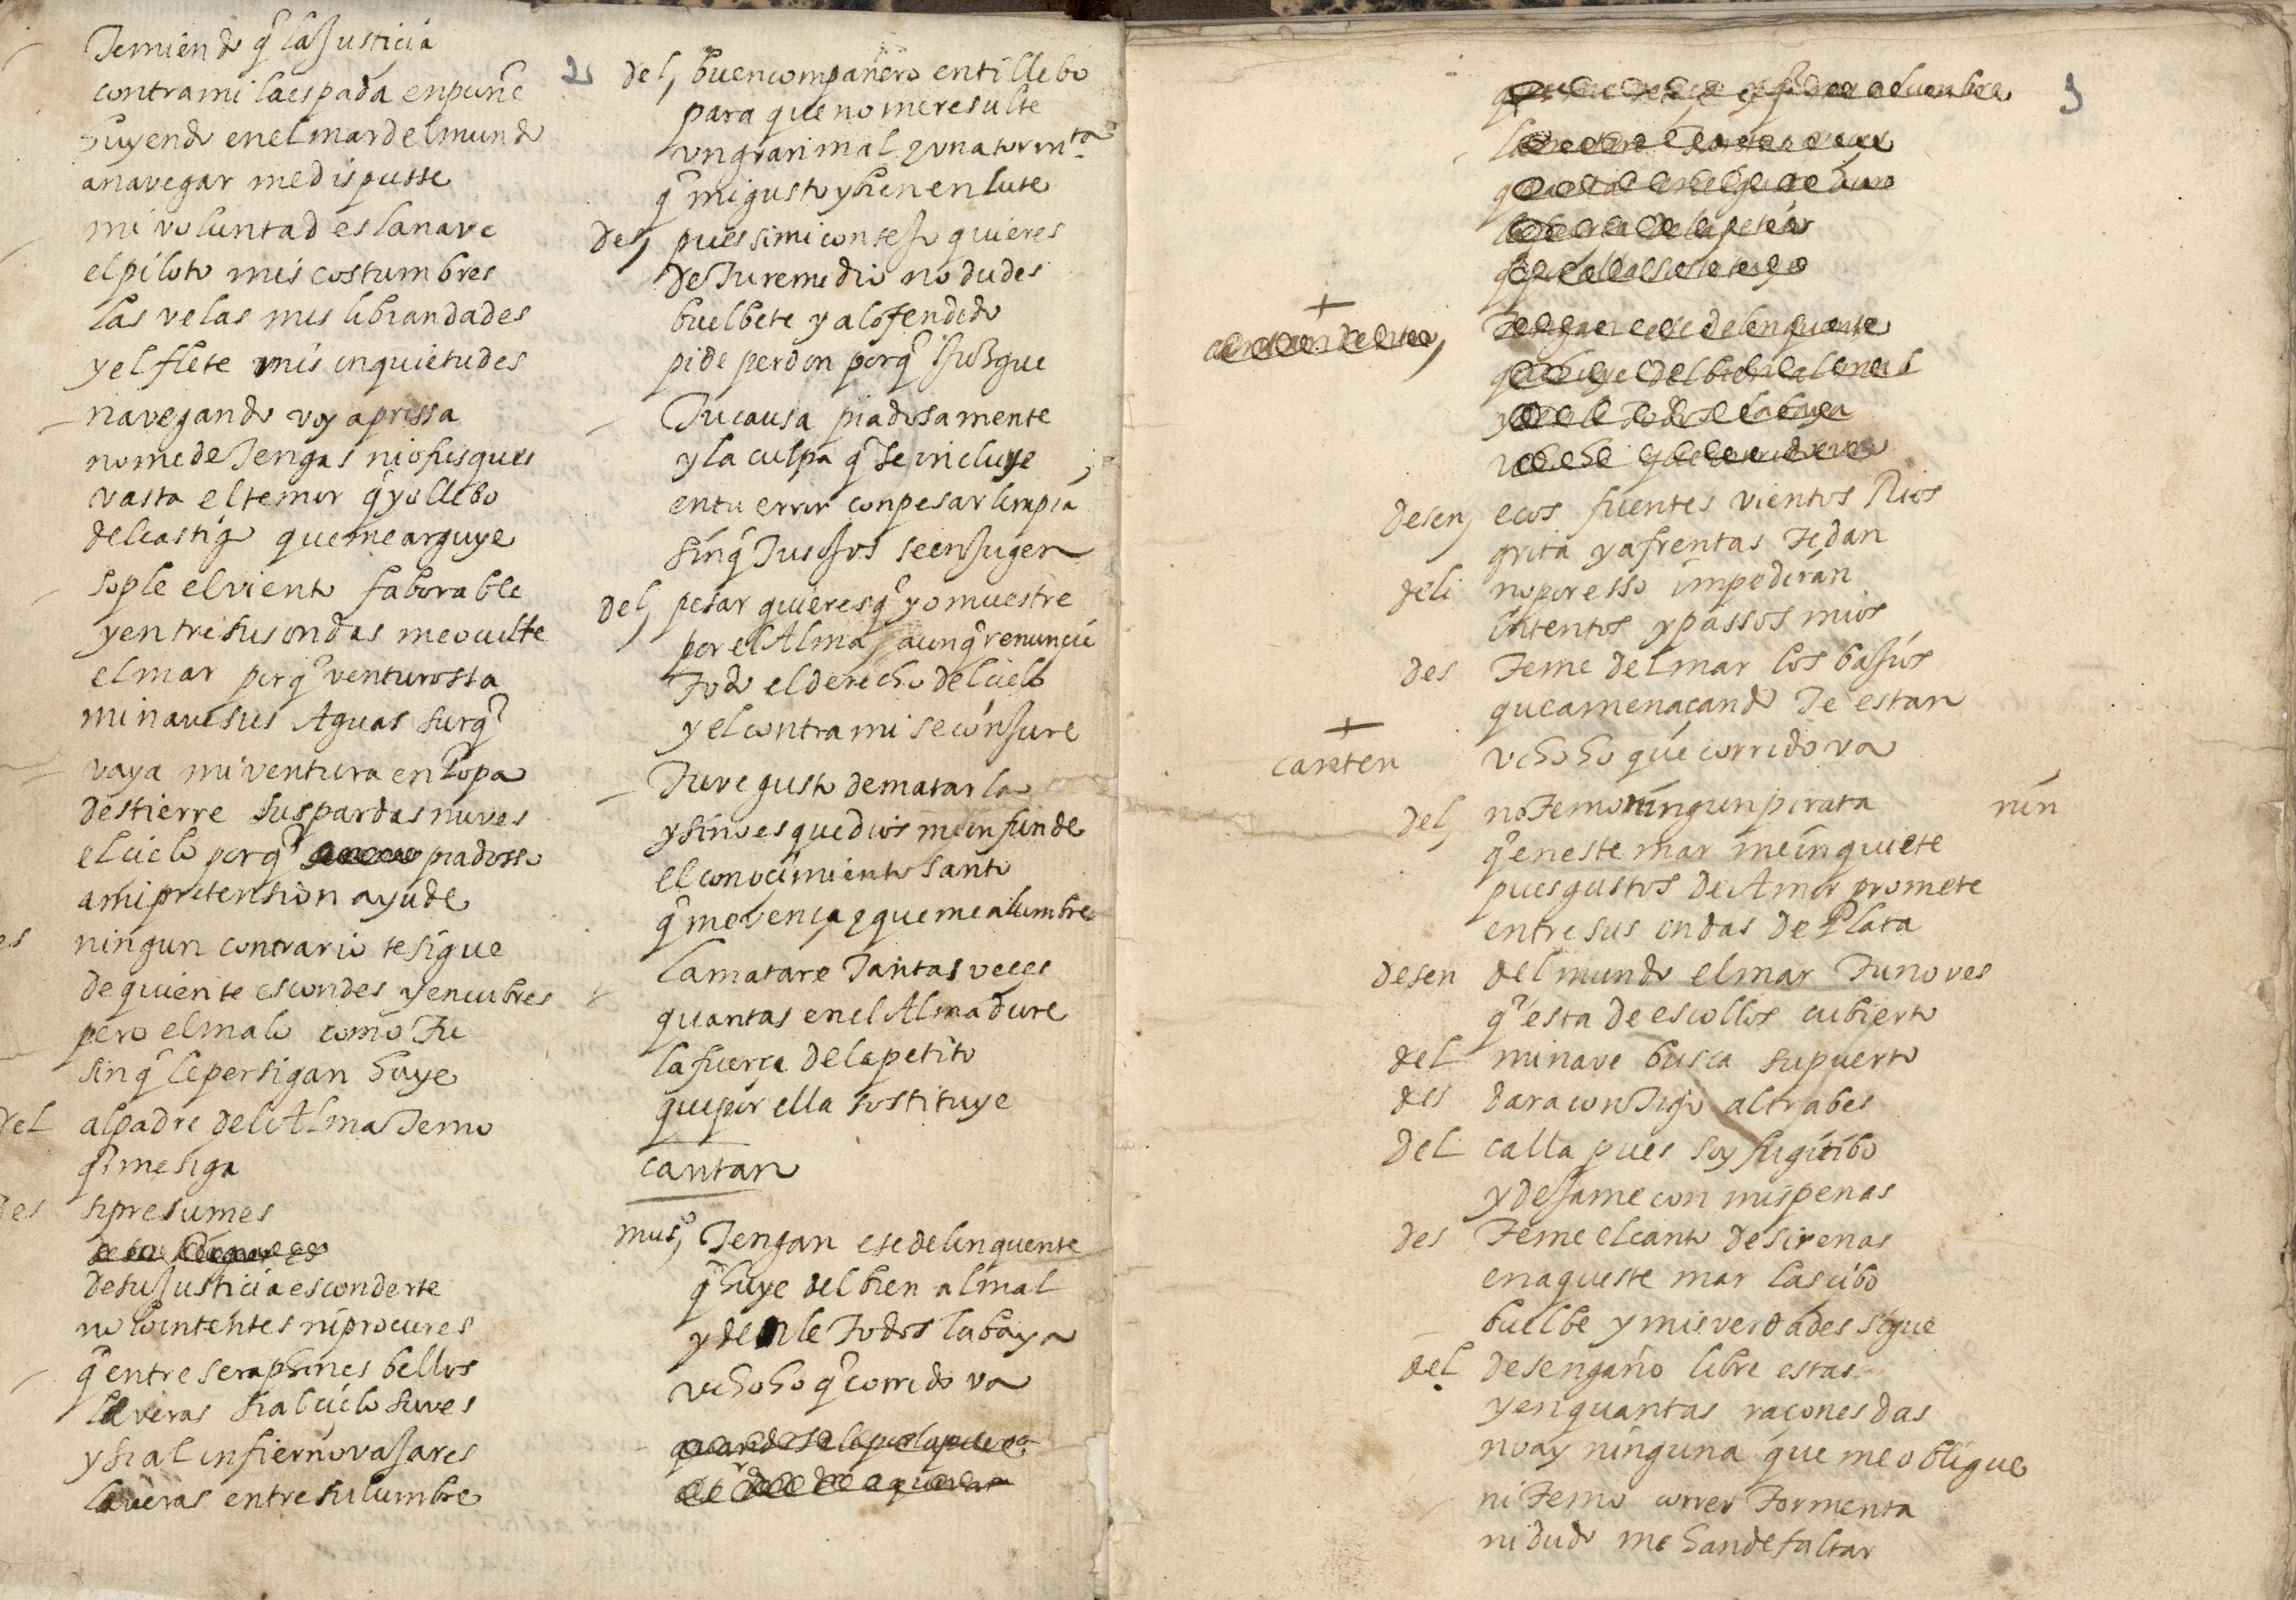 Temiendo q̃ la Justicia
contra mi la espada enpuñe
huyendo en el mar del mundo
a navegar me dispusse
mi voluntad es la nave
el piloto mis costumbres
las velas mis libiandades
y el flete mis inquietudes
navegando voy aprissa
no me detengas ni ofusques
vasta el temor q̃ yo llebo
del castigo que me arguye
sople el viento faborable
y entre sus ondas me oculte
el mar porq̃ venturossa
mi nave sus Aguas surq̃
vaya mi ventura en popa
destierre sus pardas nuves
el cielo porq̃ piadosso
a mi pretension ayude
es ningun contrario te sigue
de quien te escondes y encubres
pero el malo como Tu
sin q̃ le persigan huye
del al padre del Alma Temo
q̃ me siga
des si presumes
de su Justicia esconderte
no lo intentes ni procures
q̃ entre seraphines bellos
le veras si al cielo suves
y si al infierno vajares
le veras entre su lumbre
2
del, buen compañero en ti llebo
para que no me resulte
un gran mal y una tormta
q̃ mi gusto y bien enlute
des, pues si mi consejo quieres
de Tu remedio no dudes
buelbete y al ofendido
pide perdon porq̃ juzgue
Tu causa piadosamente
y la culpa q̃ se incluye
en tu error con pesar limpia
sin q̃ Tus ojos se enjugen
del, pesar quieres q̃ yo muestre
por el Alma, aunq̃ renuncie
Todo el derecho del cielo
y el contra mi se conjure
Tuve gusto de matarla
y sino es que dios me infunde
el conocimiento santo
q̃ me vença y que me alumbre
la matare Tantas veces
quantas en el Alma dure
la fuerça del apetito
que por ella sostituye
cantan
muso, Tengan ese delinquente
q̃ huye del bien al mal
y denle Todos la baya
uchoho q̃ corrido va
3
desen, ecos fuentes vientos Rios
grita y afrentas Te dan
deli no por esso impediran
intentos y passos mios
des Teme del mar los bajios
que amenaçando Te estan
canten uchoho que corrido va
del, no Temo ningun pirata nin
q̃ en este mar me inquiete
pues gustos de Amor promete
entre sus ondas de Plata
desen del mundo el mar Tu no ves
q̃ esta de escollos cubierto
del mi nave busca su puerto
des dara contigo al trabes
del calla pues soy fugitibo
y dejame con mis penas
des Teme el canto de sirenas
en aqueste mar lascibo
buelbe y mis verdades sigue
del desengaño libre estas
y en quantas raçones das
no ay ninguna que me obligue
ni Temo correr Tormenta
ni dudo me han de faltar